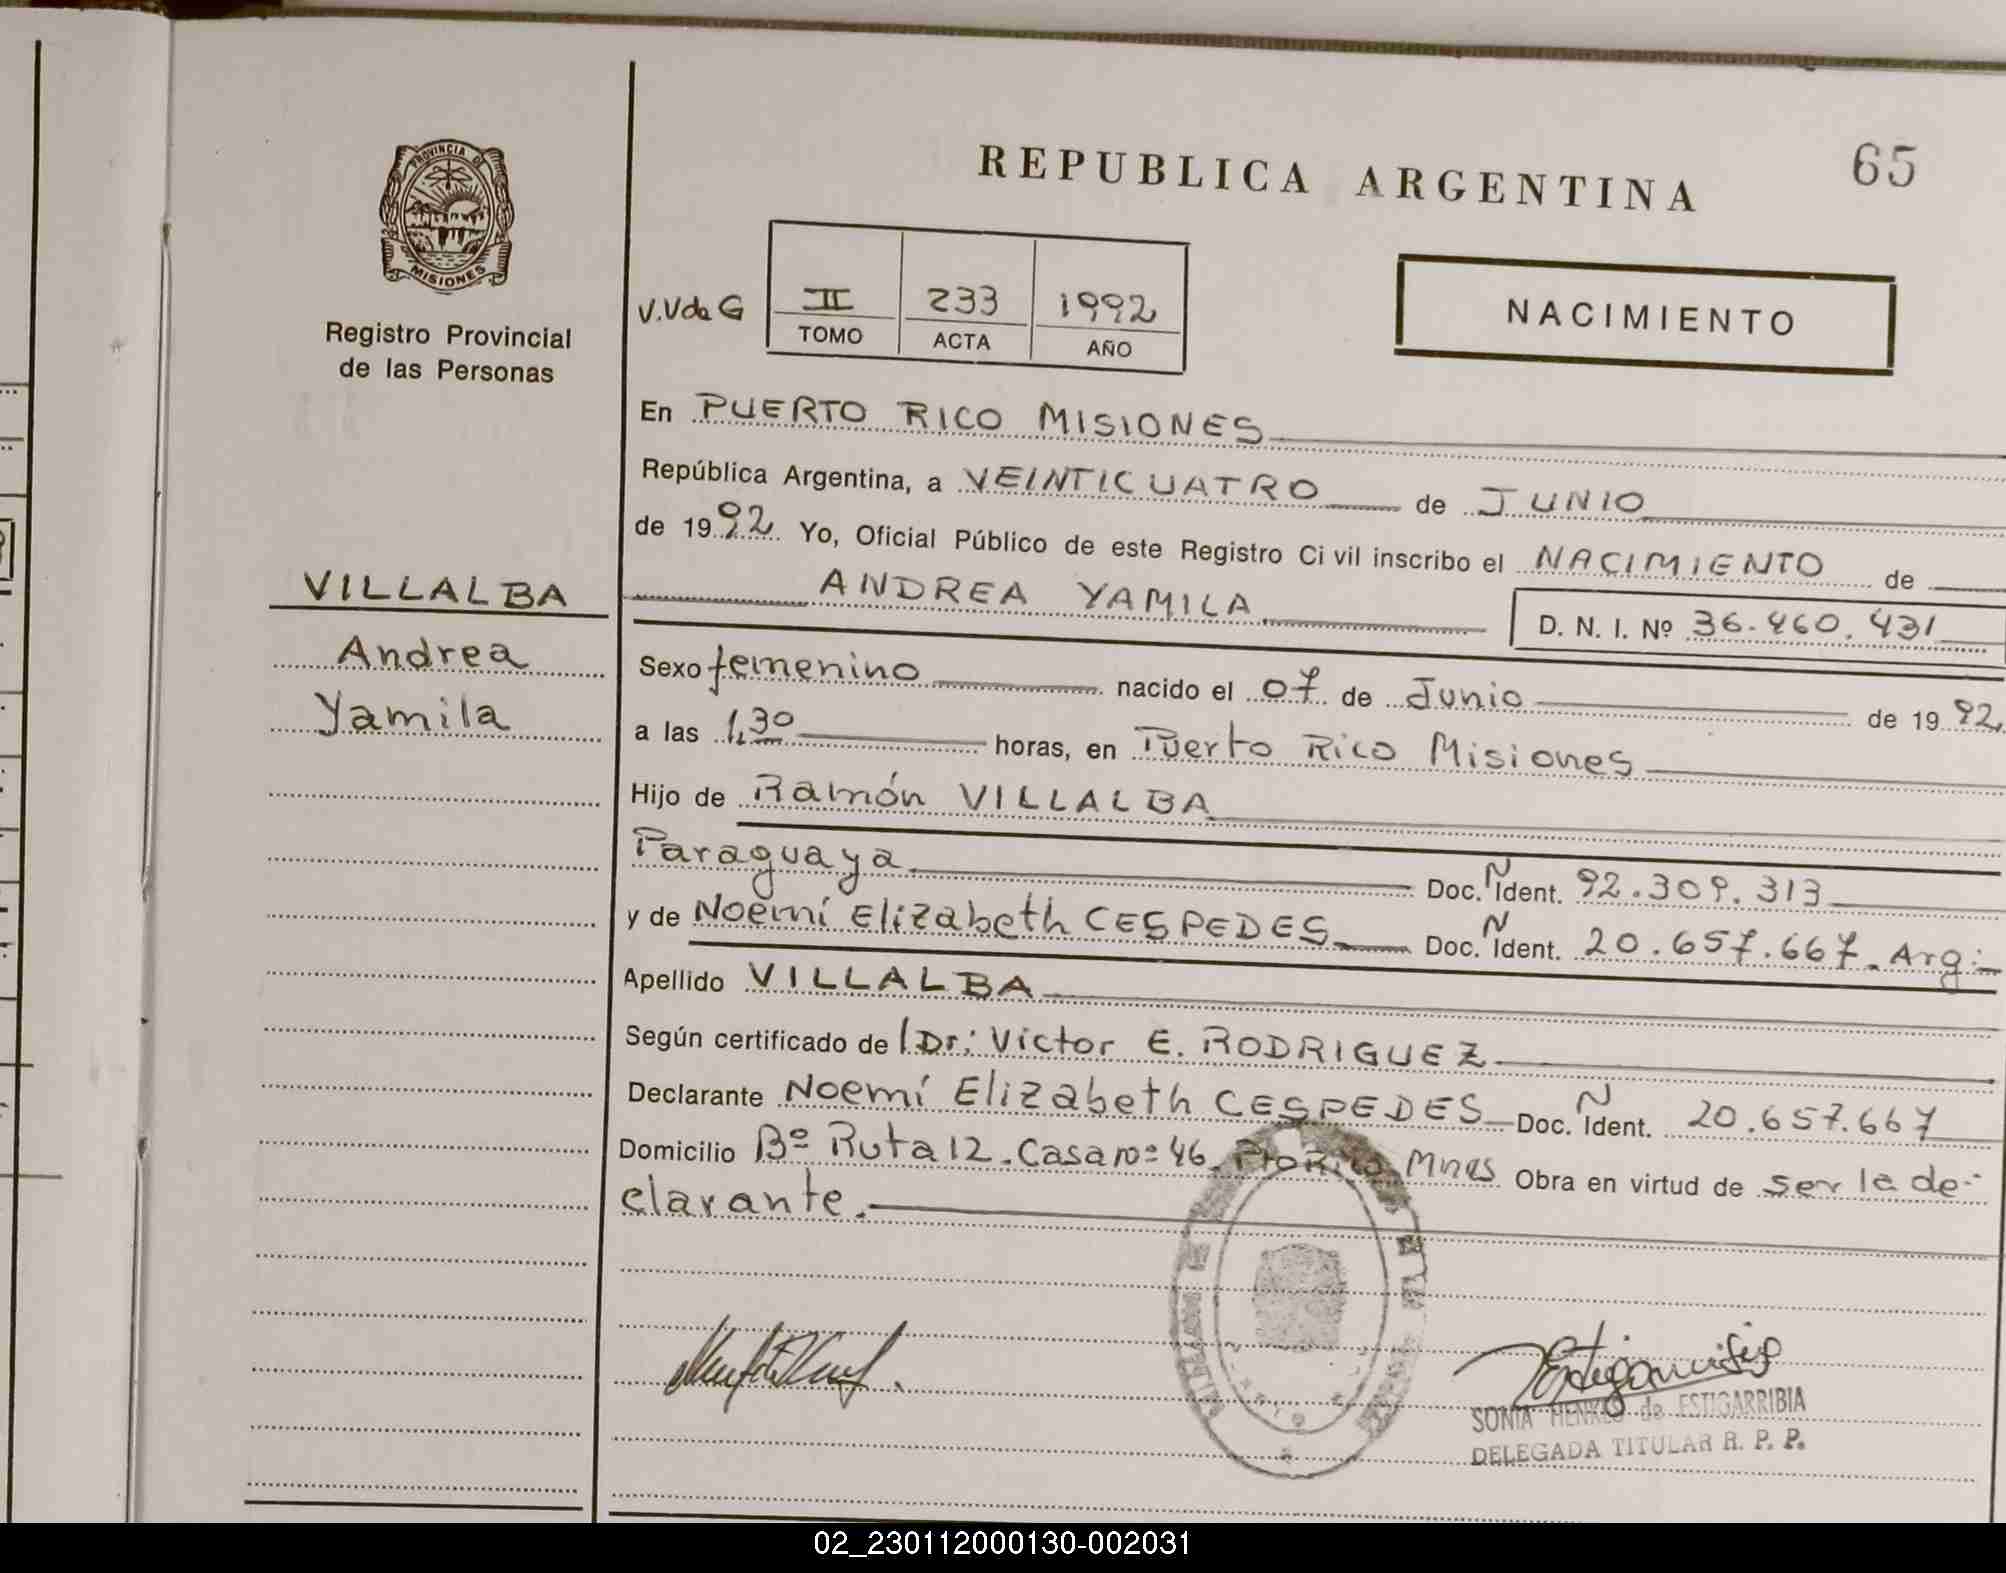 REPUBLICA ARGENTINA
65
PROVINCIA DE
MISIONES
Registro Provincial
de las Personas
V.Vda G
II 233 1992
TOMO ACTA AÑO
NACIMIENTO
En PUERTO RICO MISIONES
República Argentina, a VEINTICUATRO de JUNIO
de 1992 Yo, Oficial Público de este Registro Ci vil inscribo el NACIMIENTO de
ANDREA YAMILA D. N. I. Nº 36.460.431
VILLALBA
Andrea
Yamila
Sexo femenino nacido el 07 de Junio de 1992
a las 1,30 horas, en Puerto Rico Misiones
Hijo de Ramón VILLALBA
Paraguaya Doc. N Ident. 92.309.313
y de Noemí Elizabeth CESPEDES Doc. N Ident. 20.657.667. Arg:
Apellido VILLALBA
Según certificado de Dr: Victor E. RODRIGUEZ
Declarante Noemí Elizabeth CESPEDES Doc. N Ident. 20.657.667
Domicilio Bº Ruta 12. Casa nº 46. Pto Rico Mnes Obra en virtud de ser la de-
clarante.
SONIA HENKES de ESTIGARRIBIA
DELEGADA TITULAR R. P. P.
02_230112000130-002031